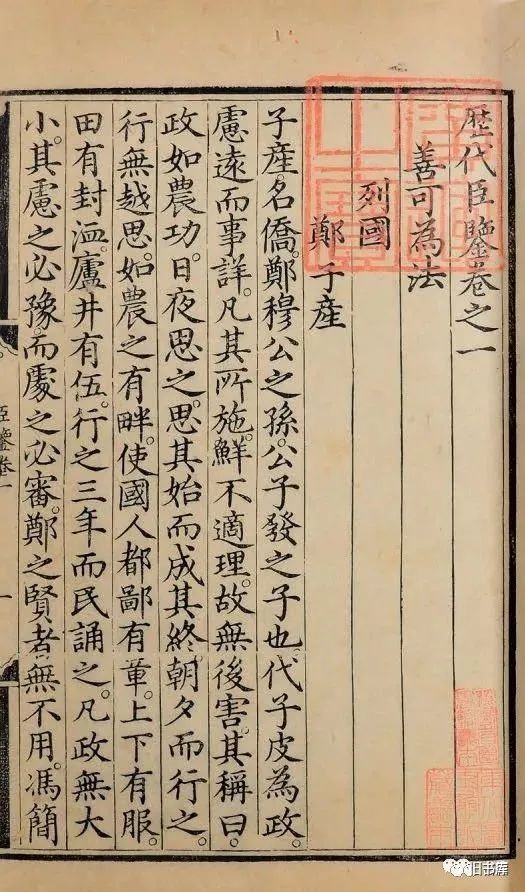 歷代臣鑒卷之一
善可為法
列國
鄭子産
子産名僑。鄭穆公之孫。公子發之子也。代子皮為政。
慮遠而事詳。凡其所施。鮮不適理。故無後害。其稱曰。
政如農功。日夜思之。思其始而成其終。朝夕而行之。
行無越思。如農之有畔。使國人都鄙有章。上下有服。
田有封洫。廬井有伍。行之三年而民誦之。凡政無大
小。其慮之必豫。而處之必審。鄭之賢者。無不用。馮簡
臣鑒卷一
一
旧书库